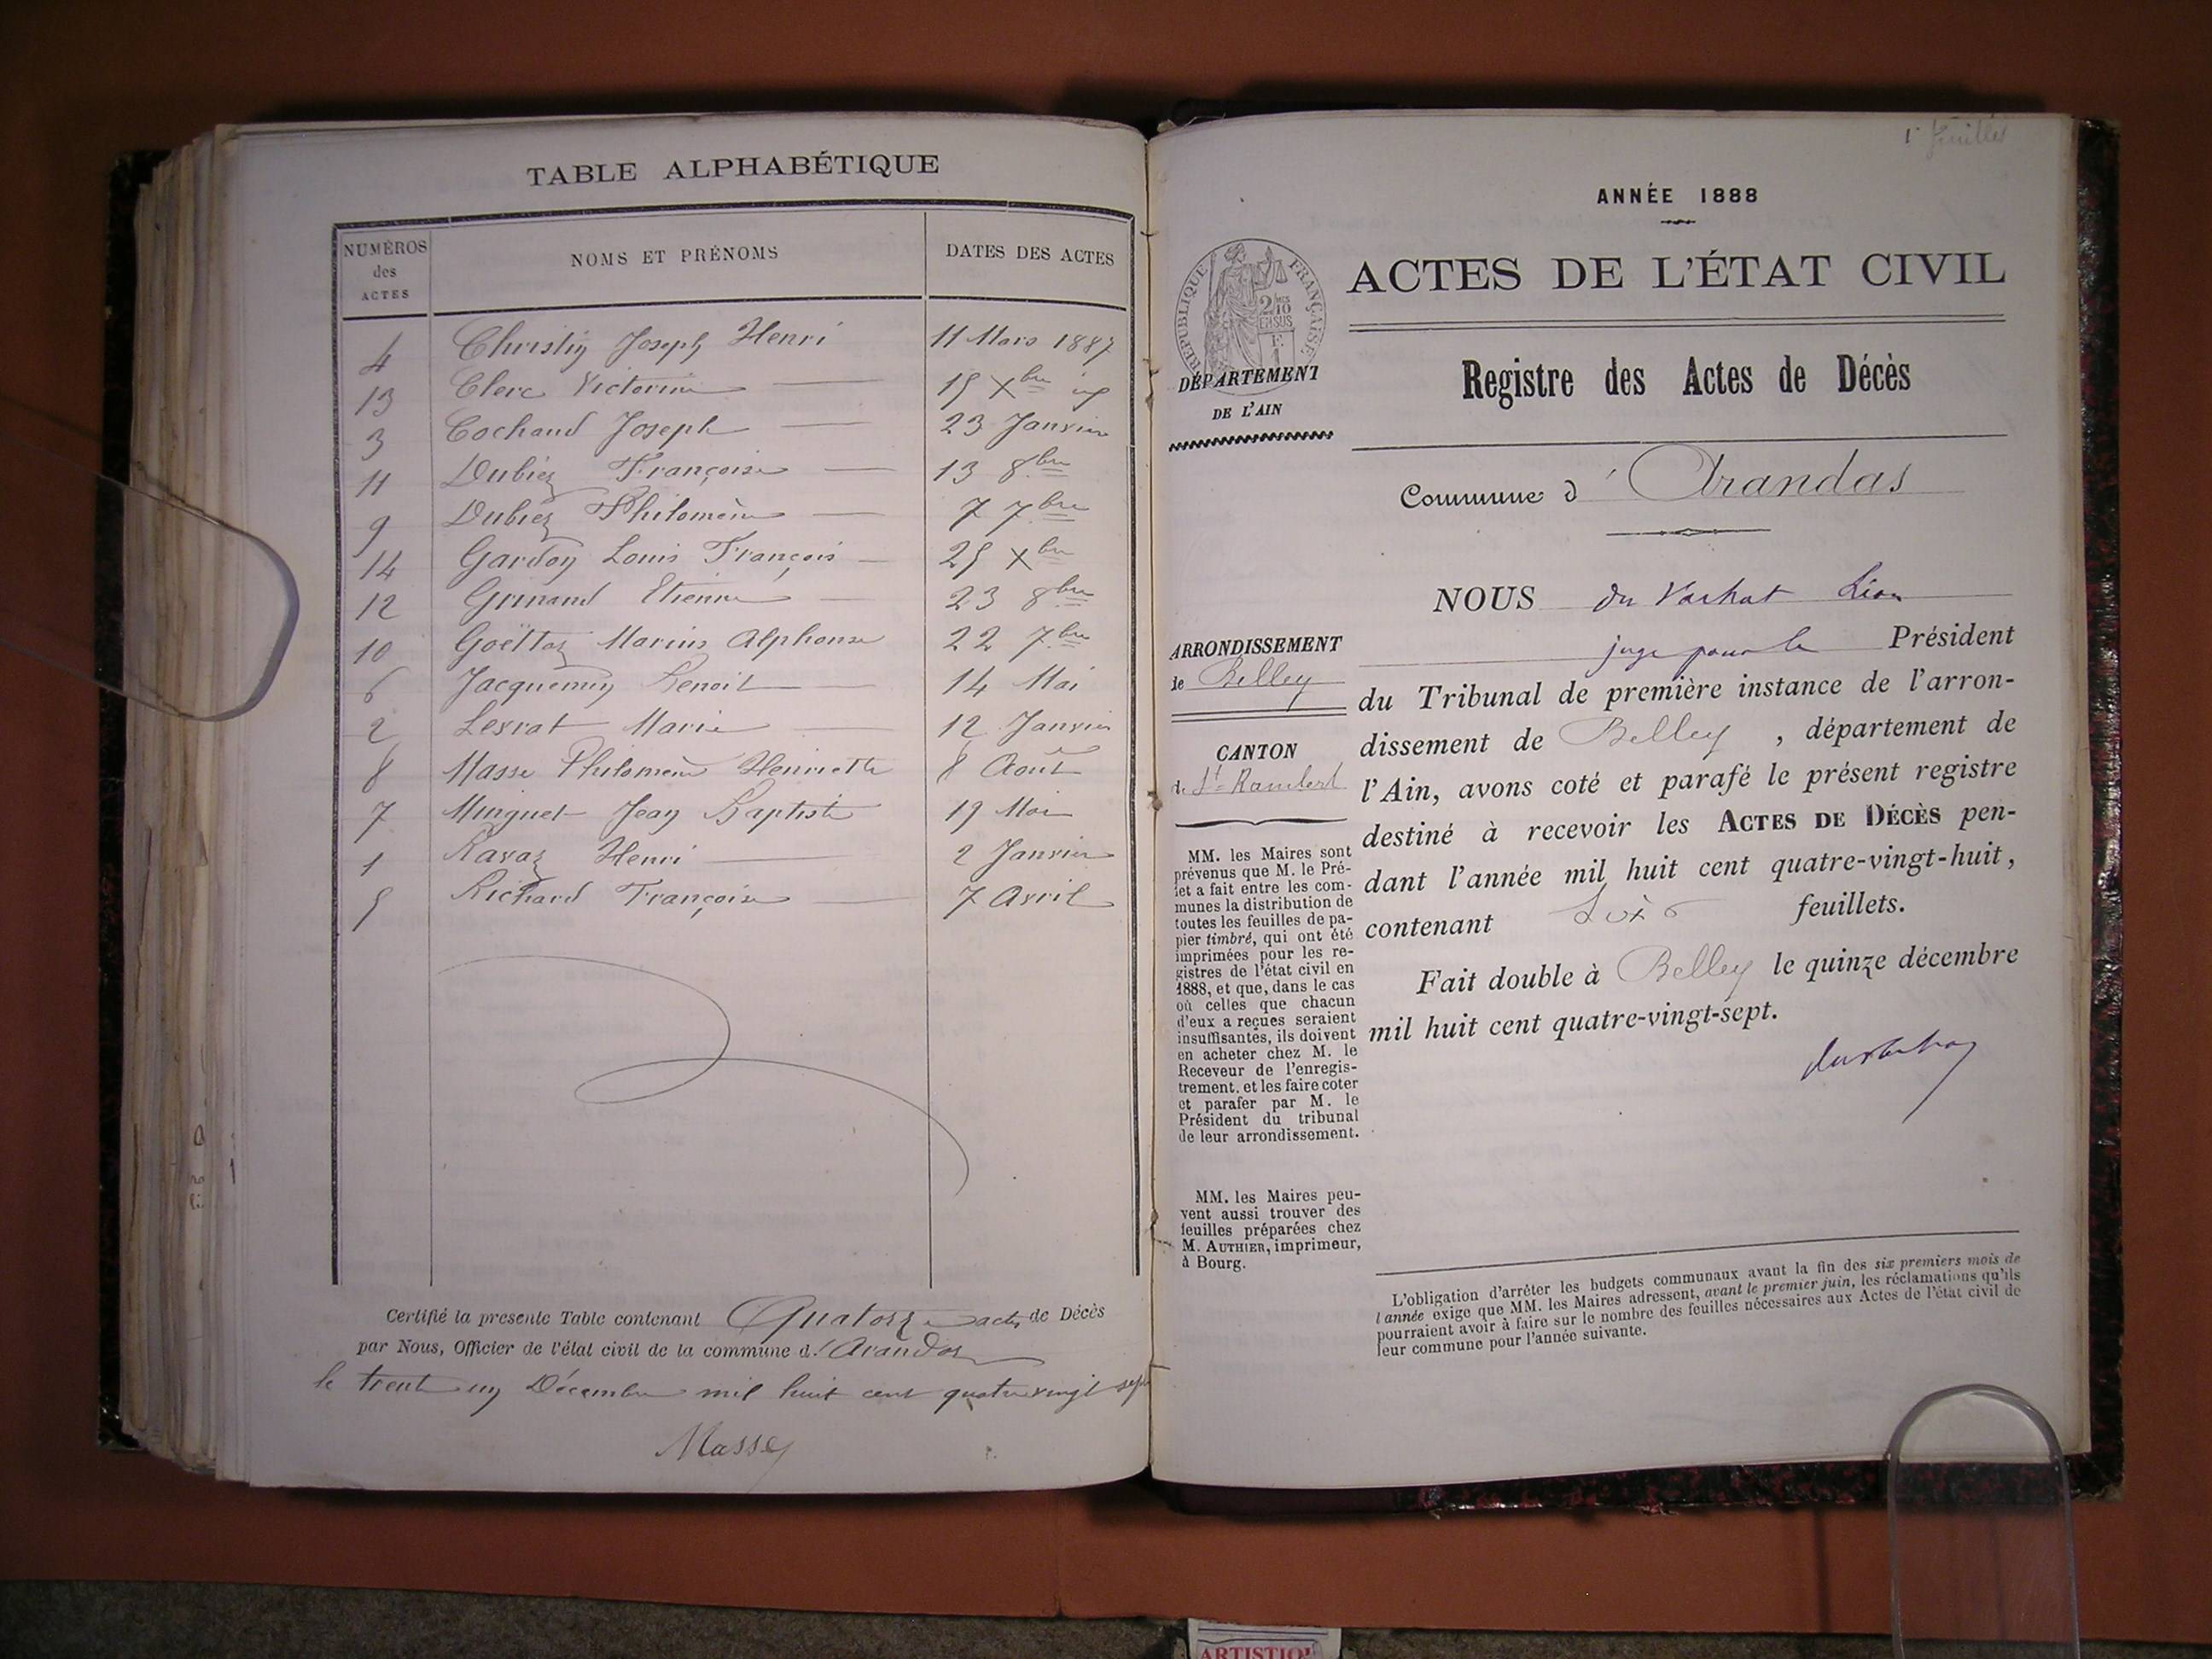 TABLE ALPHABÉTIQUE
NUMÉROS des ACTES
NOMS ET PRÉNOMS
DATES DES ACTES
4 Christin Joseph Henri 11 Mars 1887
13 Clerc Victorine 15 Xbre
3 Cochand Joseph 23 Janvier
11 Dubiez Françoise 13 8bre
9 Dubiez Philomène 7 7bre
14 Gardon Louis François 25 Xbre
12 Grinand Etienne 23 8bre
10 Goëttaz Marius Alphonse 22 7bre
6 Jacquemin Benoit 14 Mai
2 Lesrat Marie 12 Janvier
8 Masse Philomène Henriette 8 Août
7 Minguet Jean Baptiste 19 Mai
1 Ravaz Henri 2 Janvier
5 Richard Françoise 7 Avril
Certifié la présente Table contenant Quatorze actes de Décès
par Nous, Officier de l'état civil de la commune d'Arandas
le trente un Décembre mil huit cent quatre vingt sept
Masse
ANNÉE 1888
RÉPUBLIQUE FRANÇAISE
2/10
EN SUS
ACTES DE L'ÉTAT CIVIL
Registre des Actes de Décès
DÉPARTEMENT
DE L'AIN
Commune d' Arandas
NOUS du Vachat Léon
juge pour le Président
du Tribunal de première instance de l'arron-
dissement de Belley, département de
l'Ain, avons coté et parafé le présent registre
destiné à recevoir les ACTES DE DÉCÈS pen-
dant l'année mil huit cent quatre-vingt-huit,
contenant six 6 feuillets.
Fait double à Belley le quinze décembre
mil huit cent quatre-vingt-sept.
ARRONDISSEMENT
de Belley
CANTON
de St-Rambert
MM. les Maires sont
prévenus que M. le Pré-
fet a fait entre les com-
munes la distribution de
toutes les feuilles de pa-
pier timbré, qui ont été
imprimées pour les re-
gistres de l'état civil en
1888, et que, dans le cas
où celles que chacun
d'eux a reçues seraient
insuffisantes, ils doivent
en acheter chez M. le
Receveur de l'enregis-
trement, et les faire coter
et parafer par M. le
Président du tribunal
de leur arrondissement.
MM. les Maires peu-
vent aussi trouver des
feuilles préparées chez
M. AUTHIER, imprimeur,
à Bourg.
L'obligation d'arrêter les budgets communaux avant la fin des six premiers mois de
l'année exige que MM. les Maires adressent, avant le premier juin, les réclamations qu'ils
pourraient avoir à faire sur le nombre des feuilles nécessaires aux Actes de l'état civil de
leur commune pour l'année suivante.
ARTISTIQ